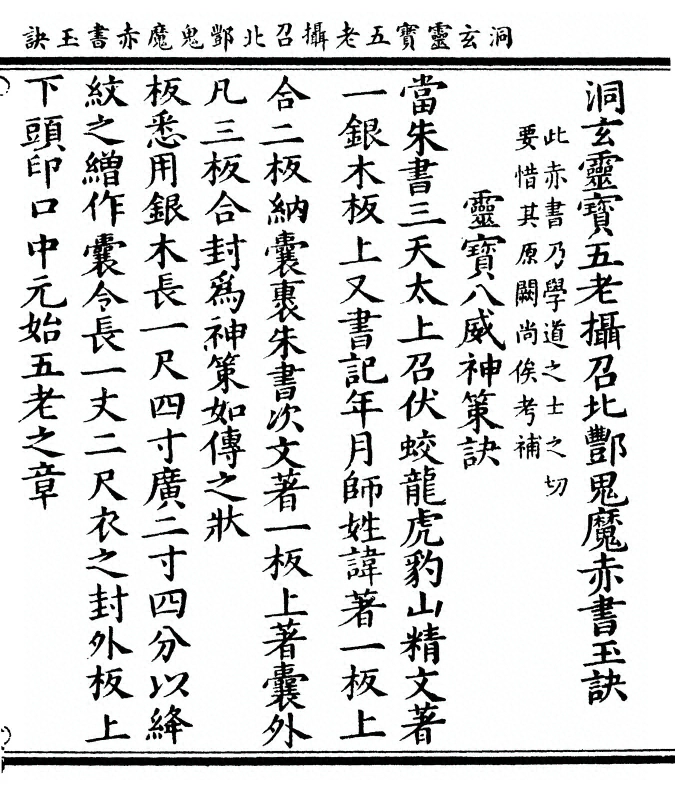 洞玄靈寶五老攝召北酆鬼魔赤書玉訣
洞玄靈寶五老攝召北酆鬼魔赤書玉訣
此赤書乃學道之士之切
要惜其原闕尚俟考補
靈寶八威神策訣
當朱書三天太上召伏蛟龍虎豹山精文著
一銀木板上又書記年月師姓諱著一板上
合二板納囊裏朱書次文著一板上著囊外
凡三板合封爲神策如傳之狀
板悉用銀木長一尺四寸廣二寸四分以絳
紋之繒作囊令長一丈二尺衣之封外板上
下頭印口中元始五老之章